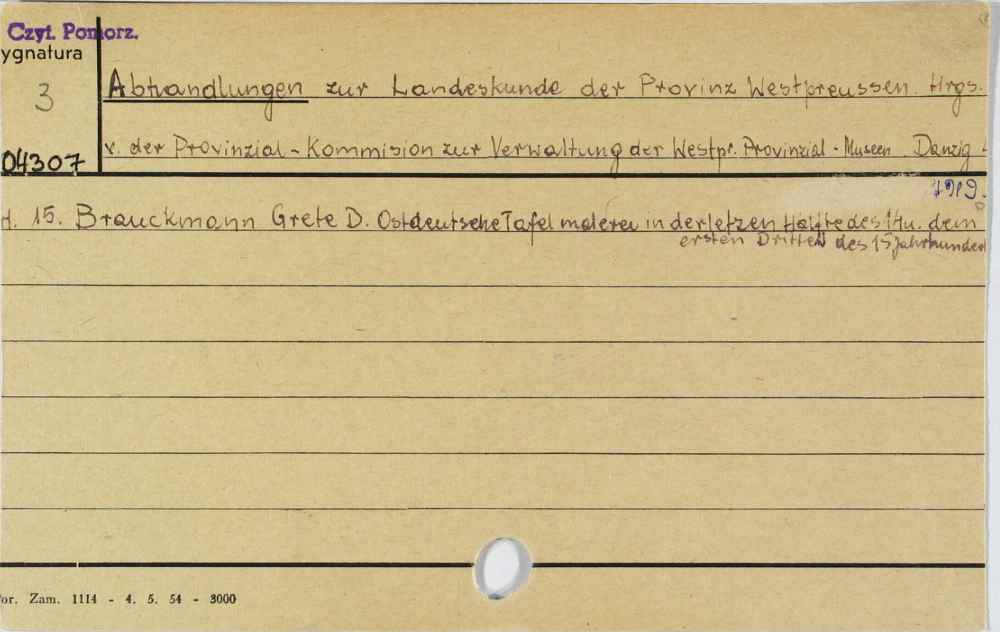 Czyt. Pomorz.
ygnatura
3
04307
Abhandlungen zur Landeskunde der Provinz Westpreussen. Hrgs.
v. der Provinzial-Kommision zur Verwaltung der Westpr. Provinzial-Museen Danzig
H. 15. Brauckmann Grete D. Ostdeutsche Tafelmalerei in der letzen Hälfte des 14u. dem
ersten Drittel des 15 Jahrhundert
or. Zam. 1114 - 4. 5. 54 - 3000